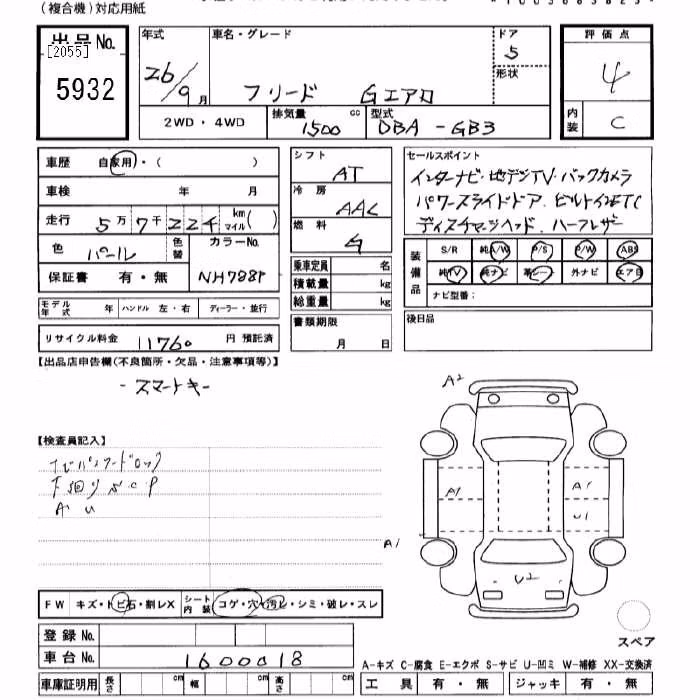 (複合機)対応用紙
出品No. 年式 車名・グレード ドア 評価点
[2055] 5
5932 26/9月 フリード Gエアロ 形状 4
2WD・4WD 排気量 1500 cc 型式 DBA-GB3 内装 C
車歴 自家用・( ) シフト AT セールスポイント
車検 年 月 冷房 AAC インターナビ・地デジTV・バックカメラ
走行 5万7千224 km マイル( ) 燃料 G パワースライドドア、ビルトインETC
色 パール 色替 カラーNo. ディスチャージヘッド、ハーフレザー
保証書 有・無 NH788P
乗車定員 名 装備品 S/R 純A/W P/S P/W ABS
積載量 kg 純TV 純ナビ 革シート 外ナビ エアB
総重量 kg ナビ型番:
モデル年式 年 ハンドル 左・右 ディーラー・並行
書類期限 月 日 後日品
リサイクル料金 11760 円 預託済
【出品店申告欄(不良箇所・欠品・注意事項等)】
-スマートキー
A2
【検査員記入】
ナビパスワードロック
下回りサCP
A U
A1 A1
U1
A1
U2
FW キズ・トビ石・割レX シート内装 コゲ・穴・汚レ・シミ・破レ・スレ
スペア
登録No.
車台No. 1600018
A-キズ C-腐食 E-エクボ S-サビ U-凹ミ W-補修 XX-交換済
車庫証明用 長さ cm 幅 cm 高さ cm 工具 有・無 ジャッキ 有・無